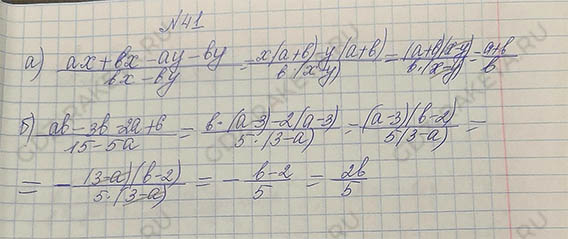 №41
а) (ax + bx - ay - by)/(bx - by) = (x(a+b) - y(a+b))/(b·(x-y)) = ((a+b)(x-y))/(b·(x-y)) = (a+b)/b
б) (ab - 3b - 2a + 6)/(15 - 5a) = (b·(a-3) - 2(a-3))/(5·(3-a)) = ((a-3)(b-2))/(5(3-a)) =
= - ((3-a)(b-2))/(5·(3-a)) = - (b-2)/5 = (2b)/5